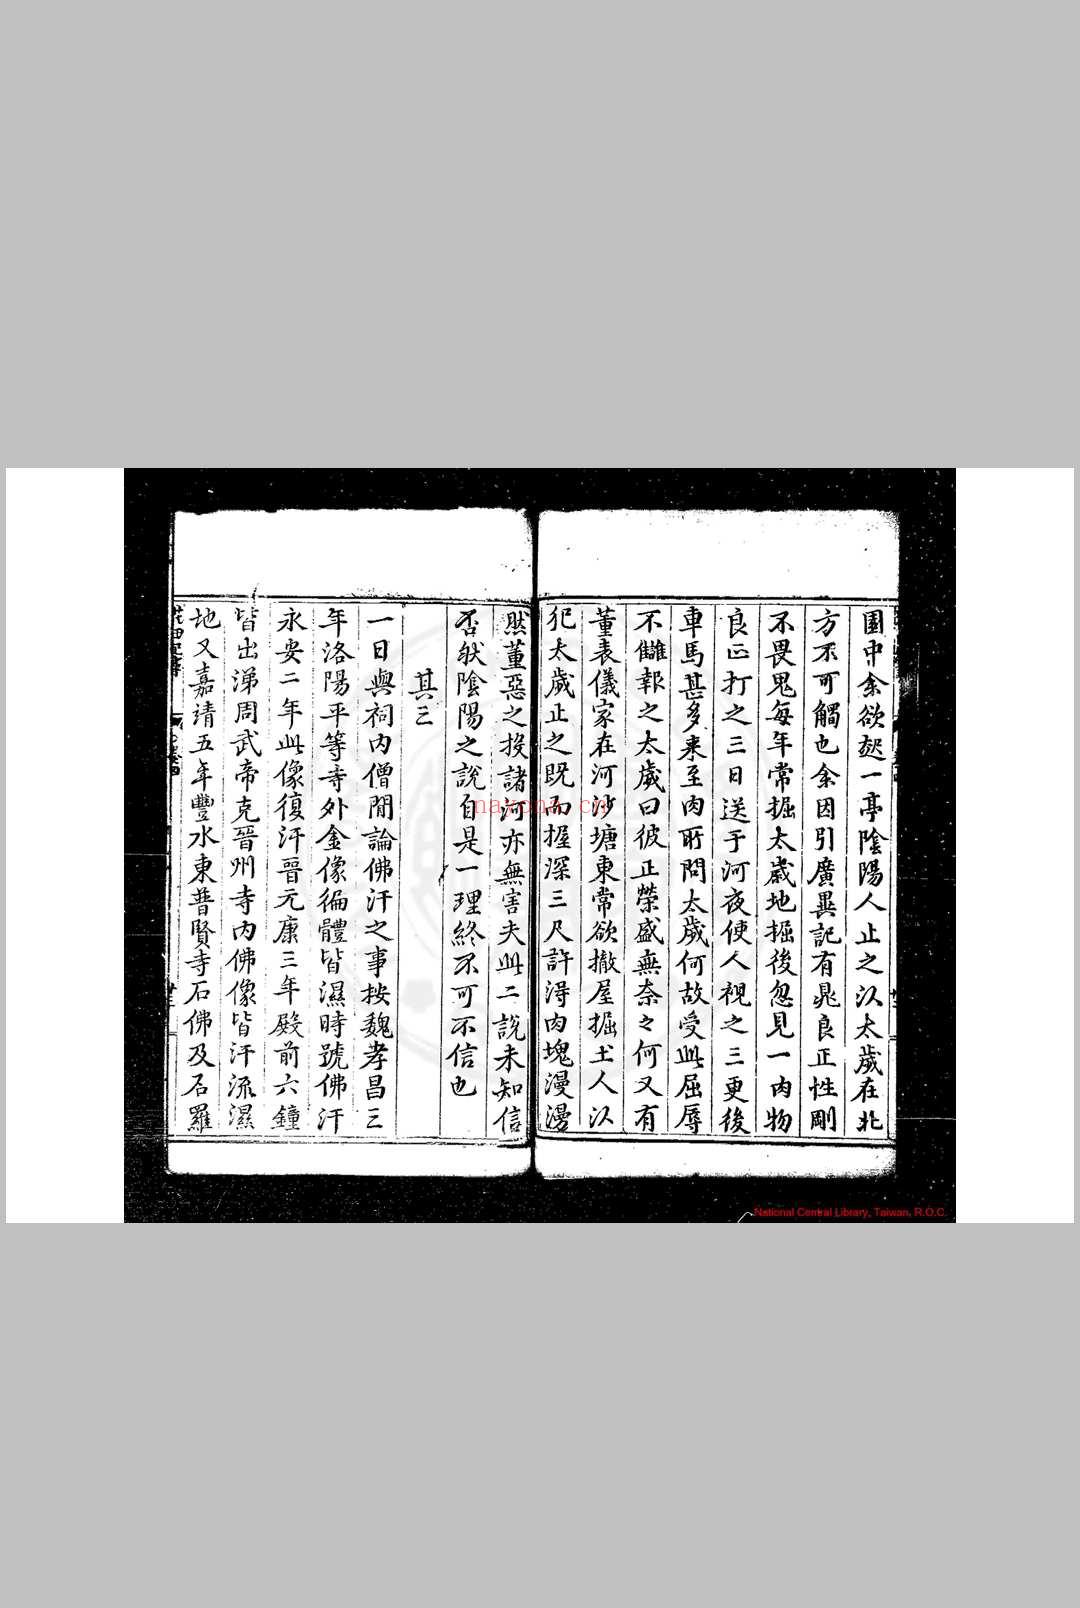 園中余欲起一亭陰陽人止之以太歲在北
方不可觸也余因引廣異記有晁良正性剛
不畏鬼每年常掘太歲地掘後忽見一肉物
良正打之三日送于河夜使人視之三更後
車馬甚多来至肉所問太歲何故受此屈辱
不讎報之太歲曰彼正榮盛無奈々何又有
董表儀家在河沙塘東常欲撤屋掘土人以
犯太歲止之既而握深三尺許淂肉塊漫漫
然董惡之投諸河亦無害夫此二說未知信
否然陰陽之說自是一理終不可不信也
其三
一日與祠内僧閒論佛汗之事按魏孝昌三
年洛陽平等寺外金像徧體皆濕時號佛汗
永安二年此像復汗晉元康三年殿前六鐘
皆出涕周武帝克晉州寺内佛像皆汗流濕
地又嘉靖五年豐水東普賢寺石佛及石羅
卷四
National Central Library, Taiwan, R.O.C.